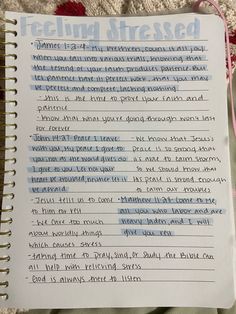 Feeling Stressed
· James 1:2-4: My brethren, count it all joy
when you fall into various trials, knowing that
the testing of your faith produces patience. But
let patience have its perfect work, that you may
be perfect and complete, lacking nothing.
- this is the time to prove your faith and
patience
- know that what you're going through won't last
for forever
· John 14:27: Peace I leave
with you, my peace I give to
you; not as the world gives do
I give to you. Let not your
heart be troubled, neither let it
be afraid
- We know that Jesus's
peace is so strong that
as able to calm storms,
so we should know that
His peace is strong enough
to calm our troubles
- Jesus tell us to come
to him for rest
- We care too much
about worldly things
which causes stress
· Matthew 11:28: Come to Me
all you who labor and are
heavy laden, and I will
give you rest
- taking time to pray, sing, or study the Bible can
all help with relieving stress
- God is always there to listen